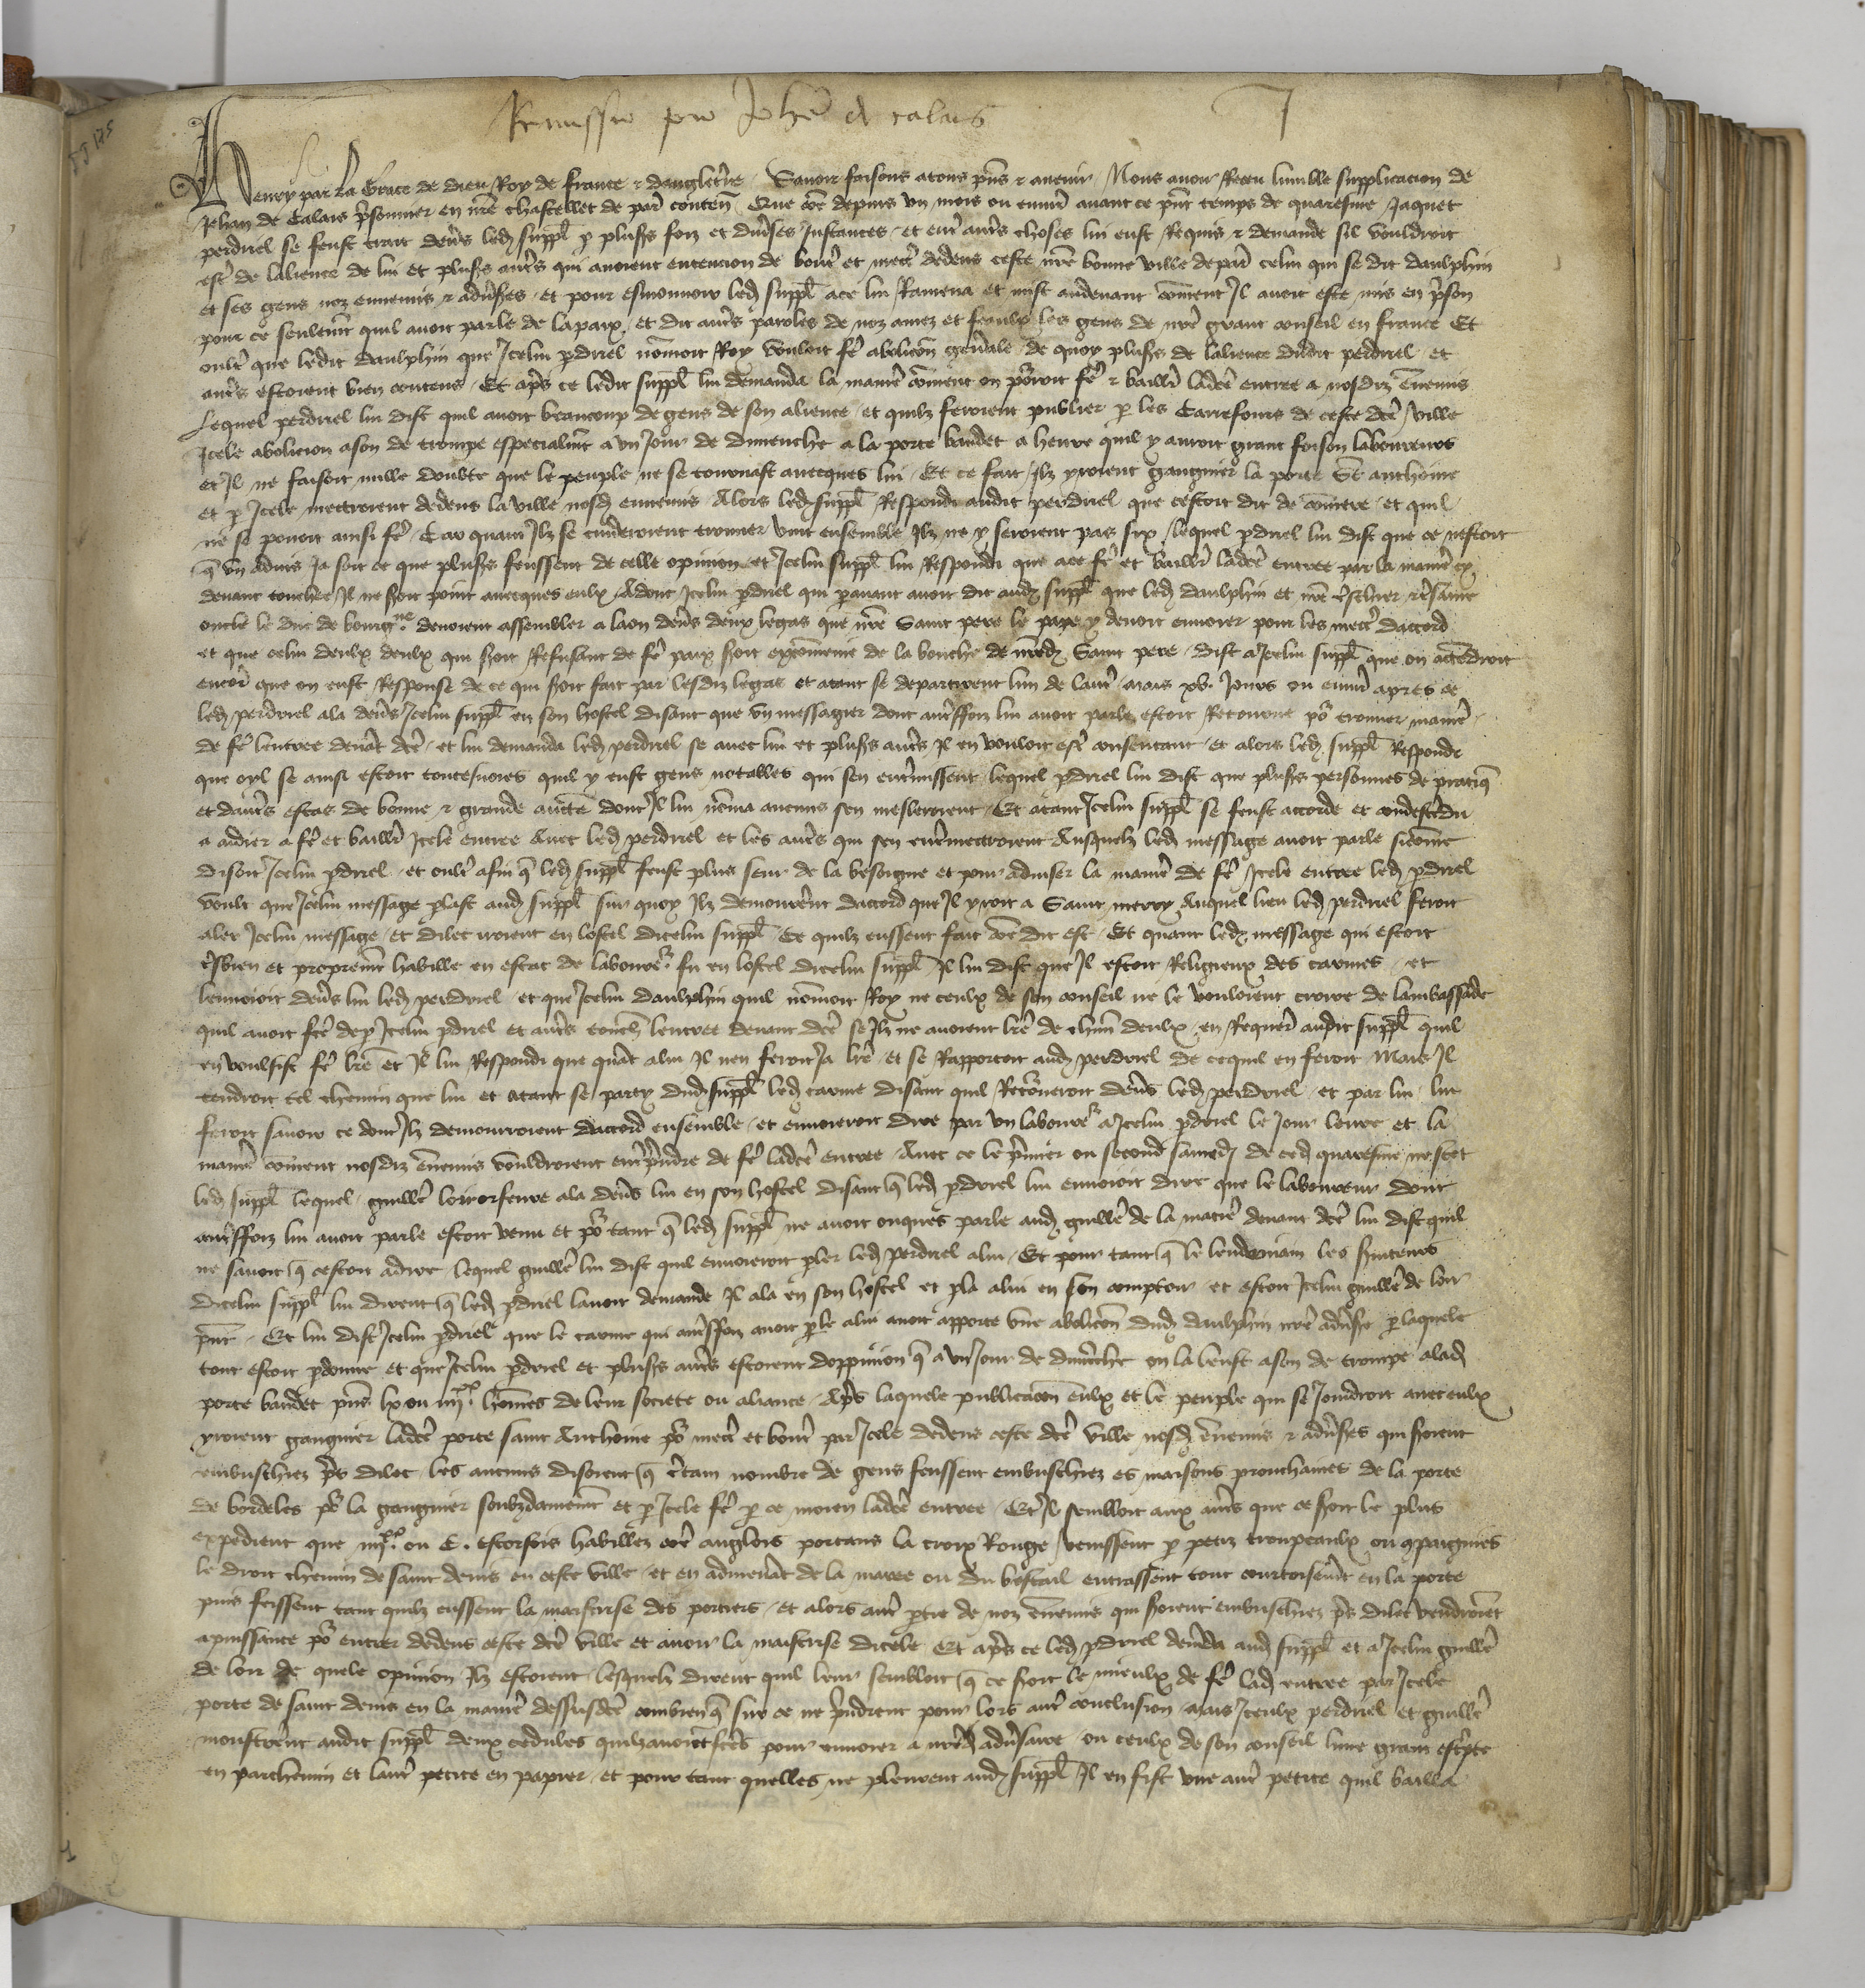 Remissio pro Jehan de Calais
I
JJ 175
Henry par la grace de dieu Roy de france et dangleterre Savoir faisons a tous presens et avenir Nous avoir Receu lumble supplicacion de
Jehan de Calais prisonnier en nostre chastellet de paris contenant Que comme depuis un mois ou environ avant ce present temps de quaresme Jaquet
perdriel se feust trait devers ledit suppliant par plusieurs foiz et diverses Instances et entre autres choses lui eust Requis et demande sil vouldroit
estre de lalience de lui et plusieurs autres qui avoient entencion de bouter et mectre dedens ceste nostre bonne ville de paris celui qui se dit daulphin
et ses gens noz ennemis et adversaires et pour esmouvoir ledit suppliant a ce lui Ramena et mist audevant comment Il avoit este mis en prison
pour ce seulement quil avoit parle de la paix et dit autres paroles de noz amez et feaulx les gens de nostre grant conseil en france Et
oultre que ledit daulphin que Icelui perdriel nommoit Roy vouloit faire abolicion generale de quoy plusieurs de lalience dudit perdriel et
autres estoient bien contens Et apres ce ledit suppliant lui demanda la maniere comment on pourroit faire et baillier ladicte entree a nosdiz ennemis
Lequel perdriel lui dist quil avoit beaucoup de gens de son alience et quilz feroient publier par les Carrefours de ceste dicte ville
Icele abolicion a son de trompe especialment a un Jour de dimenche a la porte baudet a heure quil y auroit grant foison laboureurs
et Il ne faisoit nulle doubte que le peuple ne se tournast avecques lui Et ce fait Ilz yroient gaugnier la porte Saint anthoine
et par Icele mectroient dedens la ville nosdiz ennemis Alors ledit suppliant Respondi audit perdriel que cestoit dit de et quil
ne se povoit ainsi faire Car quant Ilz se cuideroient trouver vint ensemble Ilz ne y seroient pas six lequel perdriel lui dist que ce nestoit
que un advis Ja soit ce que plusieurs feussent de celle opinion et Icelui suppliant lui Respondi que a ce faire et baillier ladicte entree par la maniere cy
devant touchee Il ne seroit point avecques eulx Adont Icelui perdriel qui paravant avoit dit audit suppliant que ledit daulphin et nostre treschier et tresame
oncle le duc de bourgne devoient assembler a laon devers deux legas que nostre Saint pere le pape y devoit envoier pour les mectre daccord
et que celui deulx deulx qui seroit Refusant de faire paix seroit excommenie de la bouche de nostredit Saint pere dist a Icelui suppliant que on actendroit
encores que on eust Response de ce qui seroit fait par lesdiz legas et atant se departirent lun de lautre Mais xv. Jours ou environ apres ce
ledit perdriel ala devers Icelui suppliant en son hostel disant que un messagier dont autresfoiz lui avoit parle estoit Retourne pour trouver maniere
de faire lentree devant dicte et lui demanda ledit perdriel se avec lui et plusieurs autres Il en vouloit estre consentant et alors ledit suppliant Respondi
que oyl se ainsi estoit toutesvoies quil y eust gens notables qui sen entremissent lequel perdriel lui dist que plusieurs personnes de pratique
et dautres estas de bonne et grande auctorite dont Il lui nomma aucuns sen mesleroient Et atant Icelui suppliant se feust accorde et condescendu
a aidier a faire et baillier Icele entree Avec ledit perdriel et les autres qui sen entremectroient Ausquelz ledit message avoit parle si comme
disoit Icelui perdriel et oultre afin que ledit suppliant feust plus seur de la besoigne et pour adviser la maniere de faire Icele entree ledit perdriel
voult que Icelui message parlast audit suppliant sur quoy Ilz demourerent daccord que Il yroit a Saint merry Auquel lieu ledit perdriel feroit
aler Icelui message et dilec iroient en lostel dicelui suppliant Ce quilz eussent fait comme dit est Et quant ledit message qui estoit
tresbien et proprement habille en estat de laboureur fu en lostel dicelui suppliant Il lui dist que Il estoit Religieux des carmes et
lenvoioit devers lui ledit perdriel et que Icelui daulphin quil nommoit Roy ne ceulx de son conseil ne le vouloient croire de lambassade
quil avoit faicte de par Icelui perdriel et autres touchant lentree devant dicte se Ilz ne avoient lettre de chacun deulx en Requerant audit suppliant quil
en voulsist faire lettre et Il lui Respondi que quant a lui Il nen feroit Ja lettre et se Rapportoit audit perdriel de ce quil en feroit Mais Il
tendroit tel chemin que lui et atant se party dudit suppliant ledit carme disant quil Retourneroit devers ledit perdriel et par lui lui
feroit savoir ce dont Ilz demourroient daccord ensemble et envoieroit dire par un laboureur a Icelui perdriel le Jour leure et la
maniere comment nosdiz ennemis vouldroient entreprendre de faire ladicte entree Avec ce le premier ou second samedi de cedit quaresme ne scet
ledit suppliant lequel guillemin orfevre ala devers lui en son hostel disant que ledit perdriel lui envoioit dire que le laboureur dont
autresfoiz lui avoit parle estoit venu et pour tant que ledit suppliant ne avoit onques parle audit guillemin de la matiere devant dicte lui dist quil
ne savoit que cestoit a dire lequel guillemin lui dist quil envoieroit parler ledit perdriel a lui Et pour tant que le lendemain les serviteurs
dicelui suppliant lui dirent que ledit perdriel lavoit demande Il ala en son hostel et parla a lui en son comptoir et estoit Icelui guillemin de loir
present Et lui dist Icelui perdriel que le carme qui autresfoiz avoit parle a lui avoit apporte une abolicion dudit daulphin nostre adversaire par laquele
tout estoit pardonne et que Icelui perdriel et plusieurs autres estoient doppinion que a un Jour de dimenche on la leust a son de trompe a ladicte
porte baudet presens lx ou iiijxx. hommes de leur societe ou aliance Apres laquele publicacion eulx et le peuple qui se Joindroit avec eulx
yroient gaugnier ladicte porte saint Anthoine pour mectre et bouter par Icele dedens ceste dicte ville nosdiz ennemis et adversaires qui seroient
embuschiez pres dilec les aucuns disoient que certain nombre de gens feussent embuschiez es maisons prouchaines de la porte
de bordeles pour la gaugnier soubzdainement et par Icele faire par ce moien ladicte entree Et Il sembloit aux autres que ce seroit le plus
expedient que iiijxx. ou C. escossois habillez comme anglois portans la croix Rouge venissent par petiz troupeaulx ou compaignies
le droit chemin de saint denis en ceste ville et en admenant de la maree ou du bestail entrassent tout courtoisement en la porte
puis feissent tant quilz eussent la maistrise des portiers et alors autre partie de noz ennemis qui seroient embuschiez pres dilec vendroient
a puissance pour entrer dedens ceste dicte ville et avoir la maistrise dicele Et apres ce ledit perdriel demanda audit suppliant et a Icelui guillemin
de loir de quele opinion Ilz estoient lesquelz dirent quil leur sembloit que ce seroit le mieulx de faire ladicte entree par Icele
porte de saint denis en la maniere dessusdicte combien que sur ce ne prindrent pour lors autre conclusion Mais Iceulx perdriel et guillemin
monstrerent audit suppliant deux cedules quilz avoient faictes pour envoier a nostredit adversaire ou ceulx de son conseil lune grant escripte
en parchemin et lautre petite en papier et pour tant quelles ne pleurent audit suppliant Il en fist une autre petite quil bailla
1